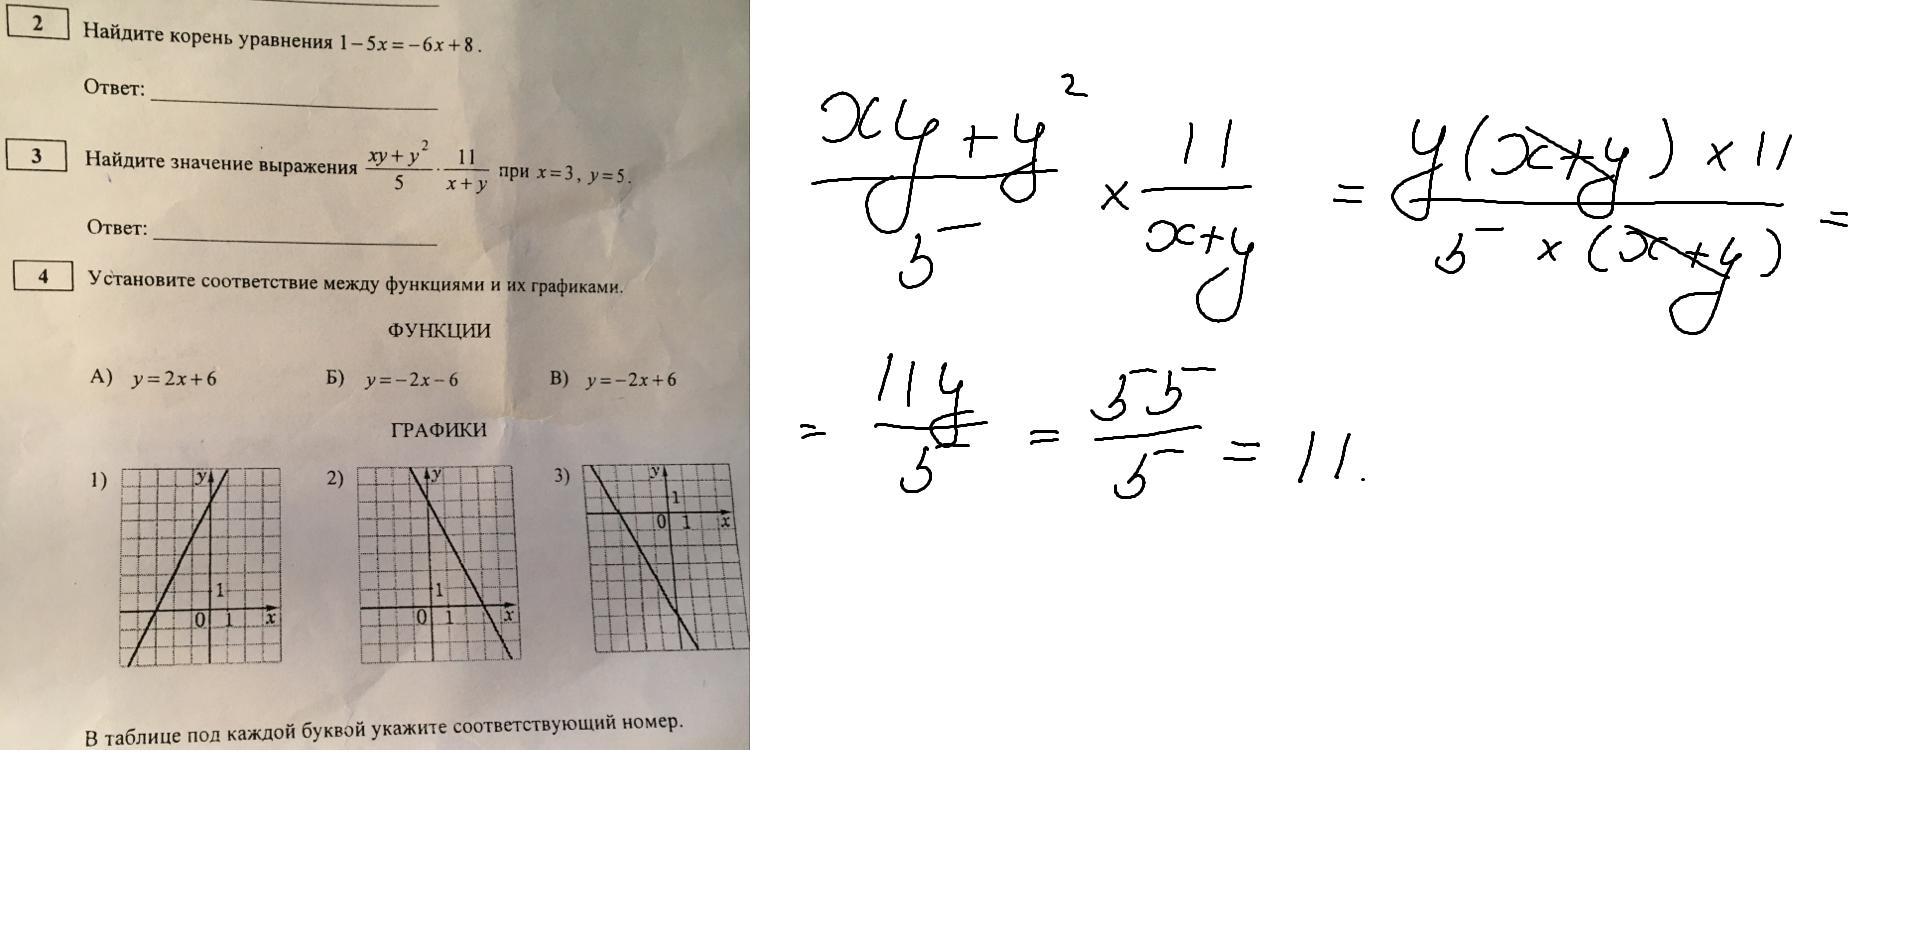 2 Найдите корень уравнения 1−5x=−6x+8.
Ответ:
3 Найдите значение выражения (xy+y²)/5 · 11/(x+y) при x=3, y=5.
Ответ:
4 Установите соответствие между функциями и их графиками.
ФУНКЦИИ
А) y=2x+6 Б) y=−2x−6 В) y=−2x+6
ГРАФИКИ
1) y 1 0 1 x
2) y 1 0 1 x
3) y 1 0 1 x
В таблице под каждой буквой укажите соответствующий номер.
(xy+y²)/5 × 11/(x+y) = (y(x+y)×11)/(5×(x+y)) =
= 11y/5 = 55/5 = 11.